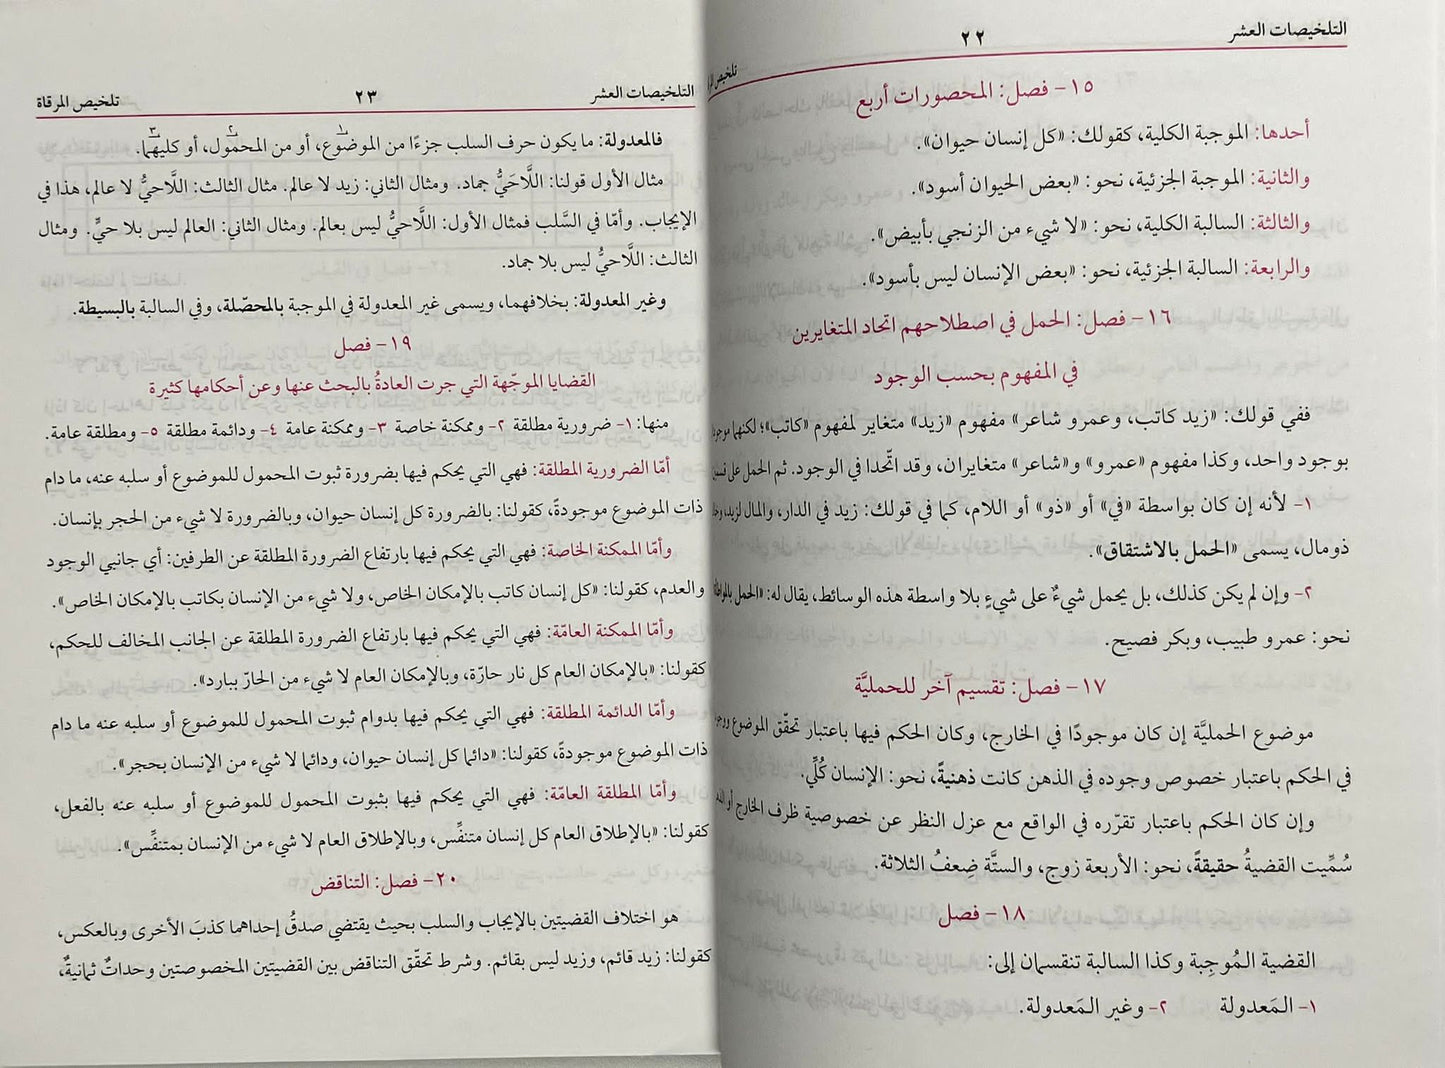 التلخيصات العشر
٢٢
١٥- فصل: المحصورات أربع
أحدها: الموجبة الكلية، كقولك: «كل إنسان حيوان».
والثانية: الموجبة الجزئية، نحو: «بعض الحيوان أسود».
والثالثة: السالبة الكلية، نحو: «لا شيء من الزنجي بأبيض».
والرابعة: السالبة الجزئية، نحو: «بعض الإنسان ليس بأسود».
١٦- فصل: الحمل في اصطلاحهم اتحاد المتغايرين
في المفهوم بحسب الوجود
ففي قولك: «زيد كاتب، وعمرو شاعر» مفهوم «زيد» متغاير لمفهوم «كاتب»؛ لكنهما
بوجود واحد، وكذا مفهوم «عمرو» و«شاعر» متغايران، وقد اتّحدا في الوجود. ثم الحمل على
١- لأنه إن كان بواسطة «في» أو «ذو» أو اللام، كما في قولك: زيد في الدار، والمال لزيد،
ذومال، يسمى «الحمل بالاشتقاق».
٢- وإن لم يكن كذلك، بل يحمل شيءٌ على شيءٍ بلا واسطة هذه الوسائط، يقال له: «الحمل
نحو: عمرو طبيب، وبكر فصيح.
١٧- فصل: تقسيم آخر للحمليَّة
موضوع الحمليَّة إن كان موجودًا في الخارج، وكان الحكم فيها باعتبار تحقّق الموضوع
في الحكم باعتبار خصوص وجوده في الذهن كانت ذهنيةً، نحو: الإنسان كُلِّي.
وإن كان الحكم باعتبار تقرّره في الواقع مع عزل النظر عن خصوصية ظرف الخارج أو
سُمِّيت القضيةُ حقيقةً، نحو: الأربعة زوج، والستَّة ضِعفُ الثلاثة.
١٨- فصل
القضية المُوجِبة وكذا السالبة تنقسمان إلى:
١- المَعدولة ٢- وغير المَعدولة.
التلخيصات العشر
٢٣
تلخيص المرقاة
فالمعدولة: ما يكون حرف السلب جزءًا من الموضوع، أو من المحمول، أو كليهما.
مثال الأول قولنا: اللَّاحَيُّ جماد. ومثال الثاني: زيد لا عالم. مثال الثالث: اللَّاحيُّ لا عالم، هذا في
الإيجاب. وأمّا في السَّلب فمثال الأول: اللَّاحيُّ ليس بعالم. ومثال الثاني: العالم ليس بلا حيٍّ. ومثال
الثالث: اللَّاحيُّ ليس بلا جماد.
وغير المعدولة: بخلافهما، ويسمى غير المعدولة في الموجبة بالمحصّلة، وفي السالبة بالبسيطة.
١٩- فصل
القضايا الموجّهة التي جرت العادةُ بالبحث عنها وعن أحكامها كثيرة
منها: ١- ضرورية مطلقة ٢- وممكنة خاصة ٣- وممكنة عامة ٤- ودائمة مطلقة ٥- ومطلقة عامة.
أمّا الضرورية المطلقة: فهي التي يحكم فيها بضرورة ثبوت المحمول للموضوع أو سلبه عنه، ما دام
ذات الموضوع موجودةً، كقولنا: بالضرورة كل إنسان حيوان، وبالضرورة لا شيء من الحجر بإنسان.
وأمّا الممكنة الخاصة: فهي التي يحكم فيها بارتفاع الضرورة المطلقة عن الطرفين: أي جانبي الوجود
والعدم، كقولنا: «كل إنسان كاتب بالإمكان الخاص، ولا شيء من الإنسان بكاتب بالإمكان الخاص».
وأمّا الممكنة العامّة: فهي التي يحكم فيها بارتفاع الضرورة المطلقة عن الجانب المخالف للحكم،
كقولنا: «بالإمكان العام كل نار حارّة، وبالإمكان العام لا شيء من الحارّ ببارد».
وأمّا الدائمة المطلقة: فهي التي يحكم فيها بدوام ثبوت المحمول للموضوع أو سلبه عنه ما دام
ذات الموضوع موجودةً، كقولنا: «دائما كل إنسان حيوان، ودائما لا شيء من الإنسان بحجر».
وأمّا المطلقة العامّة: فهي التي يحكم فيها بثبوت المحمول للموضوع أو سلبه عنه بالفعل،
كقولنا: «بالإطلاق العام كل إنسان متنفِّس، وبالإطلاق العام لا شيء من الإنسان بمتنفِّس».
٢٠- فصل: التناقض
هو اختلاف القضيتين بالإيجاب والسلب بحيث يقتضي صدقُ إحداهما كذبَ الأخرى وبالعكس،
كقولنا: زيد قائم، وزيد ليس بقائم. وشرط تحقّق التناقض بين القضيتين المخصوصتين وحداتٌ ثمانيةٌ،